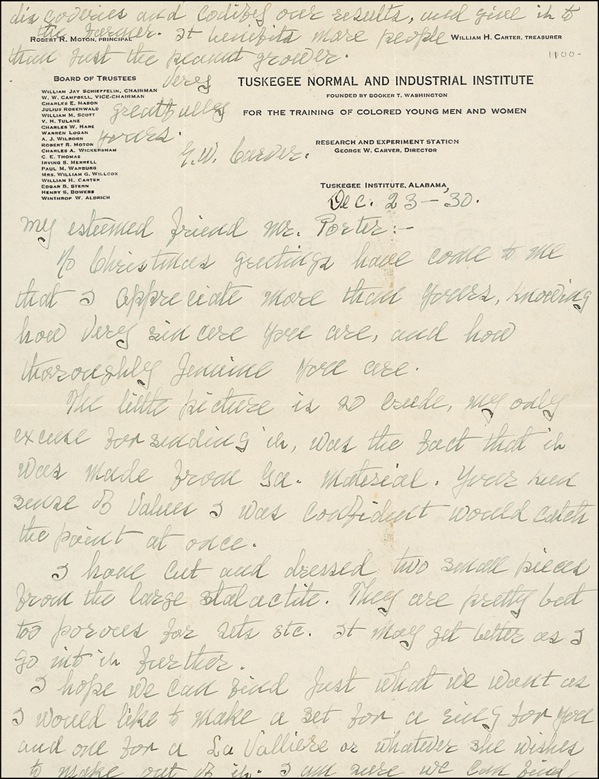 discoveries and codify our results, and give it to
the farmer. It benefits more people
than just the peanut grower.
Very
greatfully
yours.
G. W. Carver.
ROBERT R. MOTON, PRINCIPAL
WILLIAM H. CARTER, TREASURER
1100-
BOARD OF TRUSTEES
WILLIAM JAY SCHIEFFELIN, CHAIRMAN
W. W. CAMPBELL, VICE-CHAIRMAN
CHARLES E. MASON
JULIUS ROSENWALD
WILLIAM M. SCOTT
V. H. TULANE
CHARLES W. HARE
WARREN LOGAN
A. J. WILBORN
ROBERT R. MOTON
CHARLES A. WICKERSHAM
C. E. THOMAS
IRVING S. MERRELL
PAUL M. WARBURG
MRS. WILLIAM G. WILLCOX
WILLIAM H. CARTER
EDGAR B. STERN
HENRY S. BOWERS
WINTHROP W. ALDRICH
TUSKEGEE NORMAL AND INDUSTRIAL INSTITUTE
FOUNDED BY BOOKER T. WASHINGTON
FOR THE TRAINING OF COLORED YOUNG MEN AND WOMEN
RESEARCH AND EXPERIMENT STATION
GEORGE W. CARVER, DIRECTOR
TUSKEGEE INSTITUTE, ALABAMA
Dec. 23-30.
My esteemed friend Mr. Porter:-
No Christmas greetings have come to me
that I appreciate more than yours, knowing
how very sincere you are, and how
thoroughly jenuine you are.
The little picture is so crude, my only
excuse for sending it, was the fact that it
was made from Ga. material. Your keen
sense of values I was confident would catch
the point at once.
I have cut and dressed two small pieces
from the large stalactite. They are pretty but
too porous for sets etc. It may get better as I
go into it further.
I hope we can find just what we want as
I would like to make a set for a ring for you
and one for a La Valliere or whatever she wishes
to make out of it. I am sure we can find